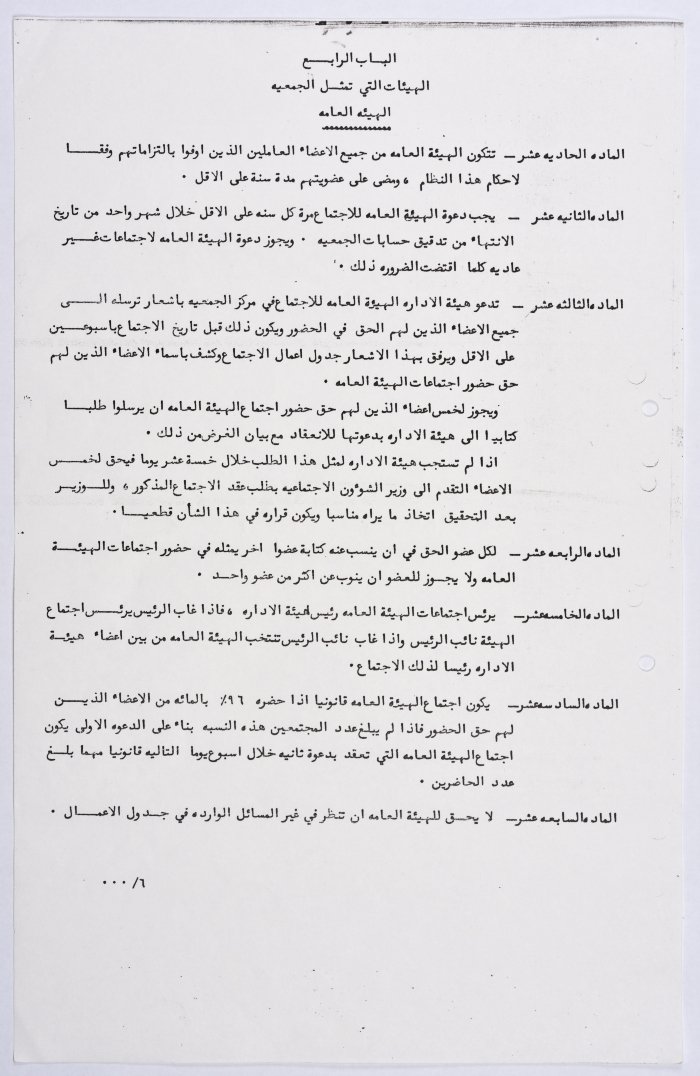 الباب الرابع
الهيئات التي تمثل الجمعيه
الهيئه العامه
الماده الحاديه عشر – تتكون الهيئة العامه من جميع الاعضاء العاملين الذين اوفوا بالتزاماتهم وفقا
لاحكام هذا النظام ، ومضى على عضويتهم مدة سنة على الاقل .
الماده الثانيه عشر – يجب دعوة الهيئة العامه للاجتماع مرة كل سنه على الاقل خلال شهر واحد من تاريخ
الانتهاء من تدقيق حسابات الجمعيه . ويجوز دعوة الهيئة العامه لاجتماعات غير
عاديه كلما اقتضت الضروره ذلك .
الماده الثالثه عشر – تدعو هيئة الاداره الهيئة العامه للاجتماع في مركز الجمعيه باشعار ترسله الى
جميع الاعضاء الذين لهم الحق في الحضور ويكون ذلك قبل تاريخ الاجتماع باسبوعين
على الاقل ويرفق بهذا الاشعار جدول اعمال الاجتماع وكشف باسماء الاعضاء الذين لهم
حق حضور اجتماعات الهيئة العامه .
ويجوز لخمس اعضاء الذين لهم حق حضور اجتماع الهيئة العامه ان يرسلوا طلبا
كتابيا الى هيئة الاداره بدعوتها للانعقاد مع بيان الغرض من ذلك .
اذا لم تستجب هيئة الاداره لمثل هذا الطلب خلال خمسة عشر يوما فيحق لخمس
الاعضاء التقدم الى وزير الشوءون الاجتماعيه بطلب عقد الاجتماع المذكور ، وللوزير
بعد التحقيق اتخاذ ما يراه مناسبا ويكون قراره في هذا الشأن قطعيا .
الماده الرابعه عشر – لكل عضو الحق في ان ينسب عنه كتابة عضوا اخر يمثله في حضور اجتماعات الهيئة
العامه ولا يجوز للعضو ان ينوب عن اكثر من عضو واحد .
الماده الخامسه عشر – يرئس اجتماعات الهيئة العامه رئيس هيئة الاداره ، فاذا غاب الرئيس يرئس اجتماع
الهيئة نائب الرئيس واذا غاب نائب الرئيس تنتخب الهيئة العامه من بين اعضاء هيئة
الاداره رئيسا لذلك الاجتماع .
الماده السادسه عشر – يكون اجتماع الهيئة العامه قانونيا اذا حضره ٩٦٪ بالمائه من الاعضاء الذين
لهم حق الحضور فاذا لم يبلغ عدد المجتمعين هذه النسبه بناء على الدعوه الاولى يكون
اجتماع الهيئة العامه التي تعقد بدعوة ثانيه خلال اسبوع يوما التاليه قانونيا مهما بلغ
عدد الحاضرين .
الماده السابعه عشر – لا يحق للهيئة العامه ان تنظر في غير المسائل الوارده في جدول الاعمال .
٦/ ...